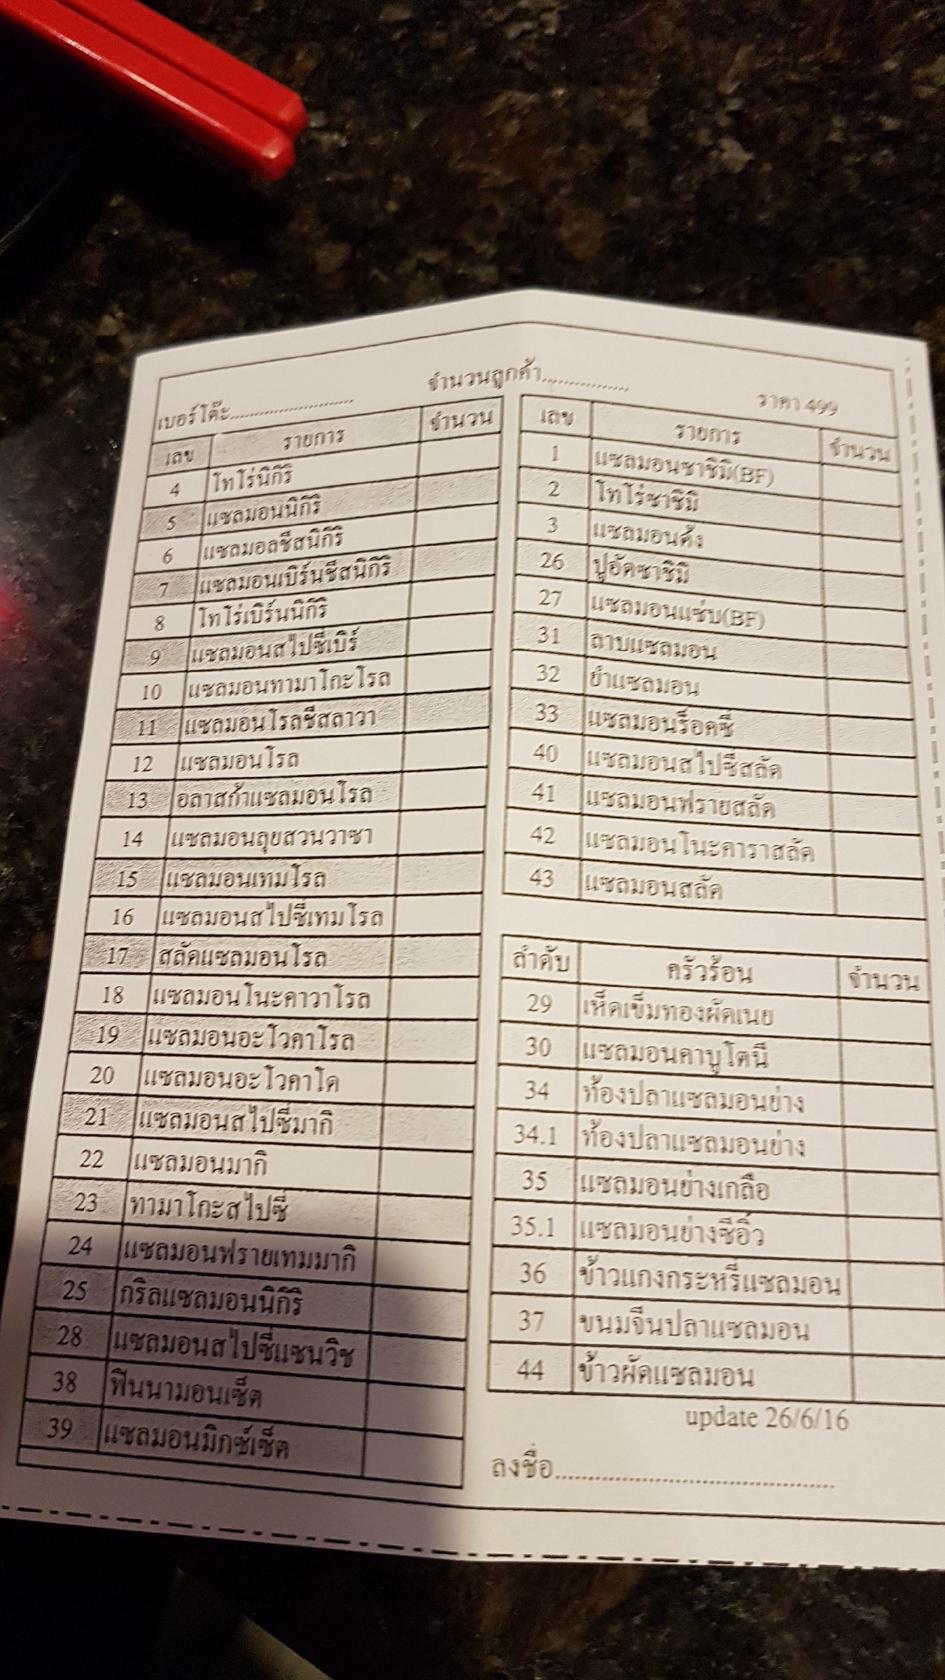 จำนวนลูกค้า................
เบอร์โต๊ะ......................... ราคา 499
เลข รายการ จำนวน
4 โทโร่นิกิริ
5 แซลมอนนิกิริ
6 แซลมอลชีสนิกิริ
7 แซลมอนเบิร์นชีสนิกิริ
8 โทโร่เบิร์นนิกิริ
9 แซลมอนสไปซีเบิร์
10 แซลมอนทามาโกะโรล
11 แซลมอนโรลชีสลาวา
12 แซลมอนโรล
13 อลาสก้าแซลมอนโรล
14 แซลมอนลุยสวนวาซา
15 แซลมอนเทมโรล
16 แซลมอนสไปซี่เทมโรล
17 สลัดแซลมอนโรล
18 แซลมอนโนะคาวาโรล
19 แซลมอนอะโวคาโรล
20 แซลมอนอะโวคาโด
21 แซลมอนสไปซี่มากิ
22 แซลมอนมากิ
23 ทามาโกะสไปซี่
24 แซลมอนฟรายเทมมากิ
25 กริลแซลมอนนิกิริ
28 แซลมอนสไปซี่แซนวิช
38 ฟินนามอนเซ็ต
39 แซลมอนมิกซ์เซ็ต
เลข รายการ จำนวน
1 แซลมอนซาชิมิ(BF)
2 โทโร่ซาชิมิ
3 แซลมอนดัง
26 ปูอัดซาชิมิ
27 แซลมอนแซ่บ(BF)
31 ลาบแซลมอน
32 ยำแซลมอน
33 แซลมอนร็อคซี่
40 แซลมอนสไปซีสลัด
41 แซลมอนฟรายสลัด
42 แซลมอนโนะคาราสลัด
43 แซลมอนสลัด
ลำดับ ครัวร้อน จำนวน
29 เห็ดเข็มทองผัดเนย
30 แซลมอนคาบูโตนี
34 ท้องปลาแซลมอนย่าง
34.1 ท้องปลาแซลมอนย่าง
35 แซลมอนย่างเกลือ
35.1 แซลมอนย่างซีอิ้ว
36 ข้าวแกงกระหรี่แซลมอน
37 ขนมจีนปลาแซลมอน
44 ข้าวผัดแซลมอน
update 26/6/16
ลงชื่อ........................................